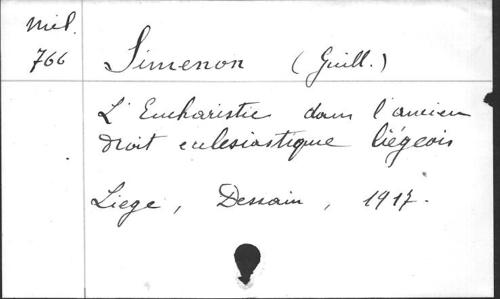 Mél.
766
Simenon (Guill.)
L'Eucharistie dans l'ancien
droit eclesiastique liégeois
Liege, Dessain, 1917.